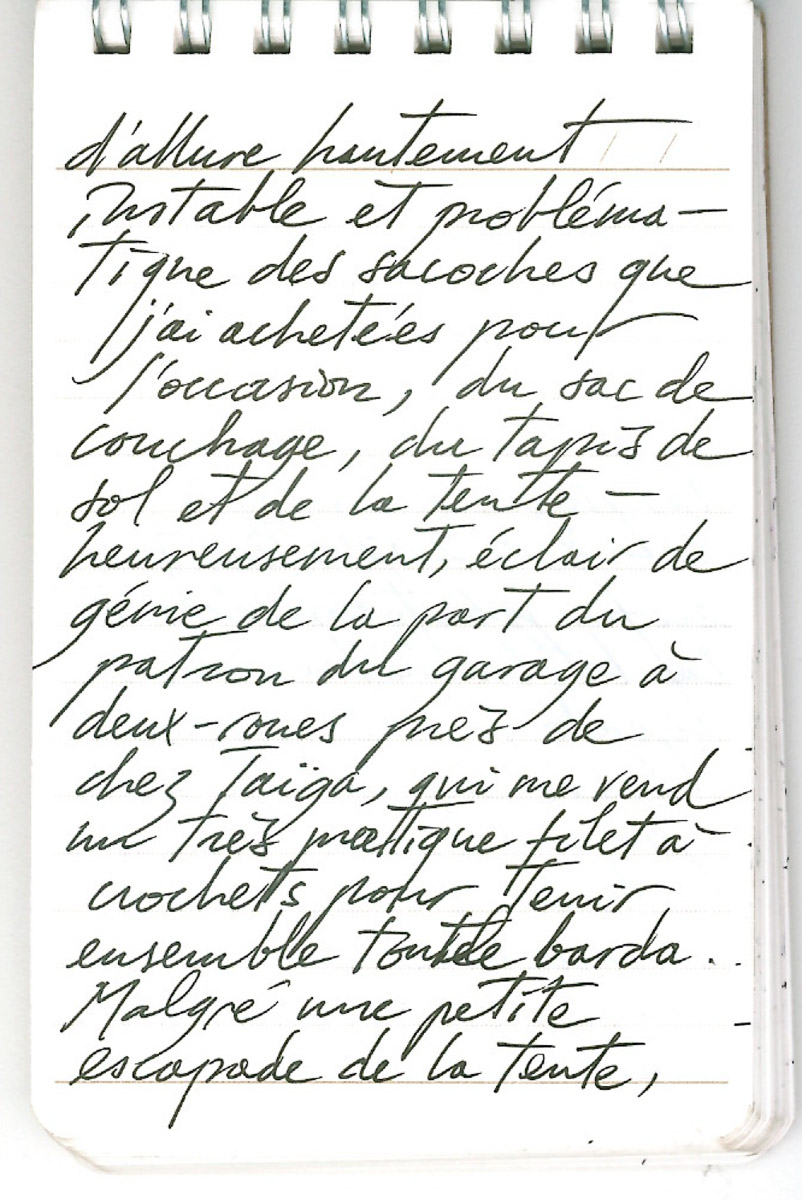 d'allure hautement
instable et probléma-
tique des sacoches que
j'ai achetées pour
l'occasion, du sac de
couchage, du tapis de
sol et de la tente –
heureusement, éclair de
génie de la part du
patron du garage à
deux-roues près de
chez Taïga, qui me vend
un très pratique filet à
crochets pour tenir
ensemble tout le barda..
Malgré une petite
escapade de la tente,